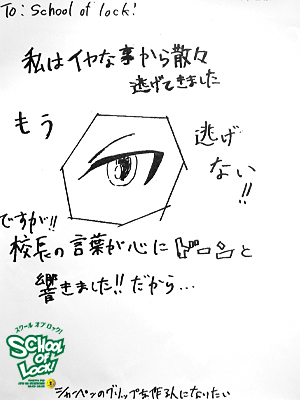 To: School of lock!
私はイヤな事から散々
逃げてきました
もう
逃げ
ない!!
ですが!!
校長の言葉が心にドーンと
響きました!!だから...
スクール オブ ロック!
SCHOOL
OF
LOCK!
シャーペンのグリップを作る人になりたい